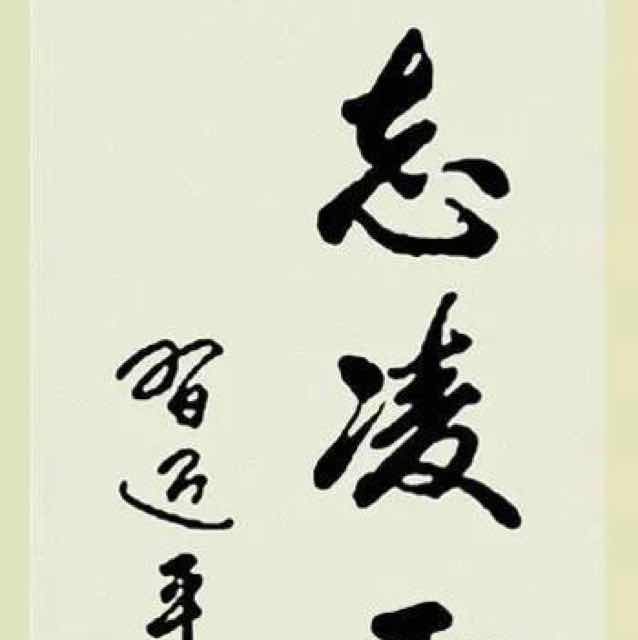 志凌
习近平